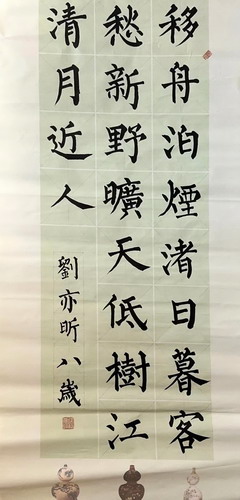 移舟泊煙渚日暮客
愁新野曠天低樹江
清月近人
劉亦昕八歲